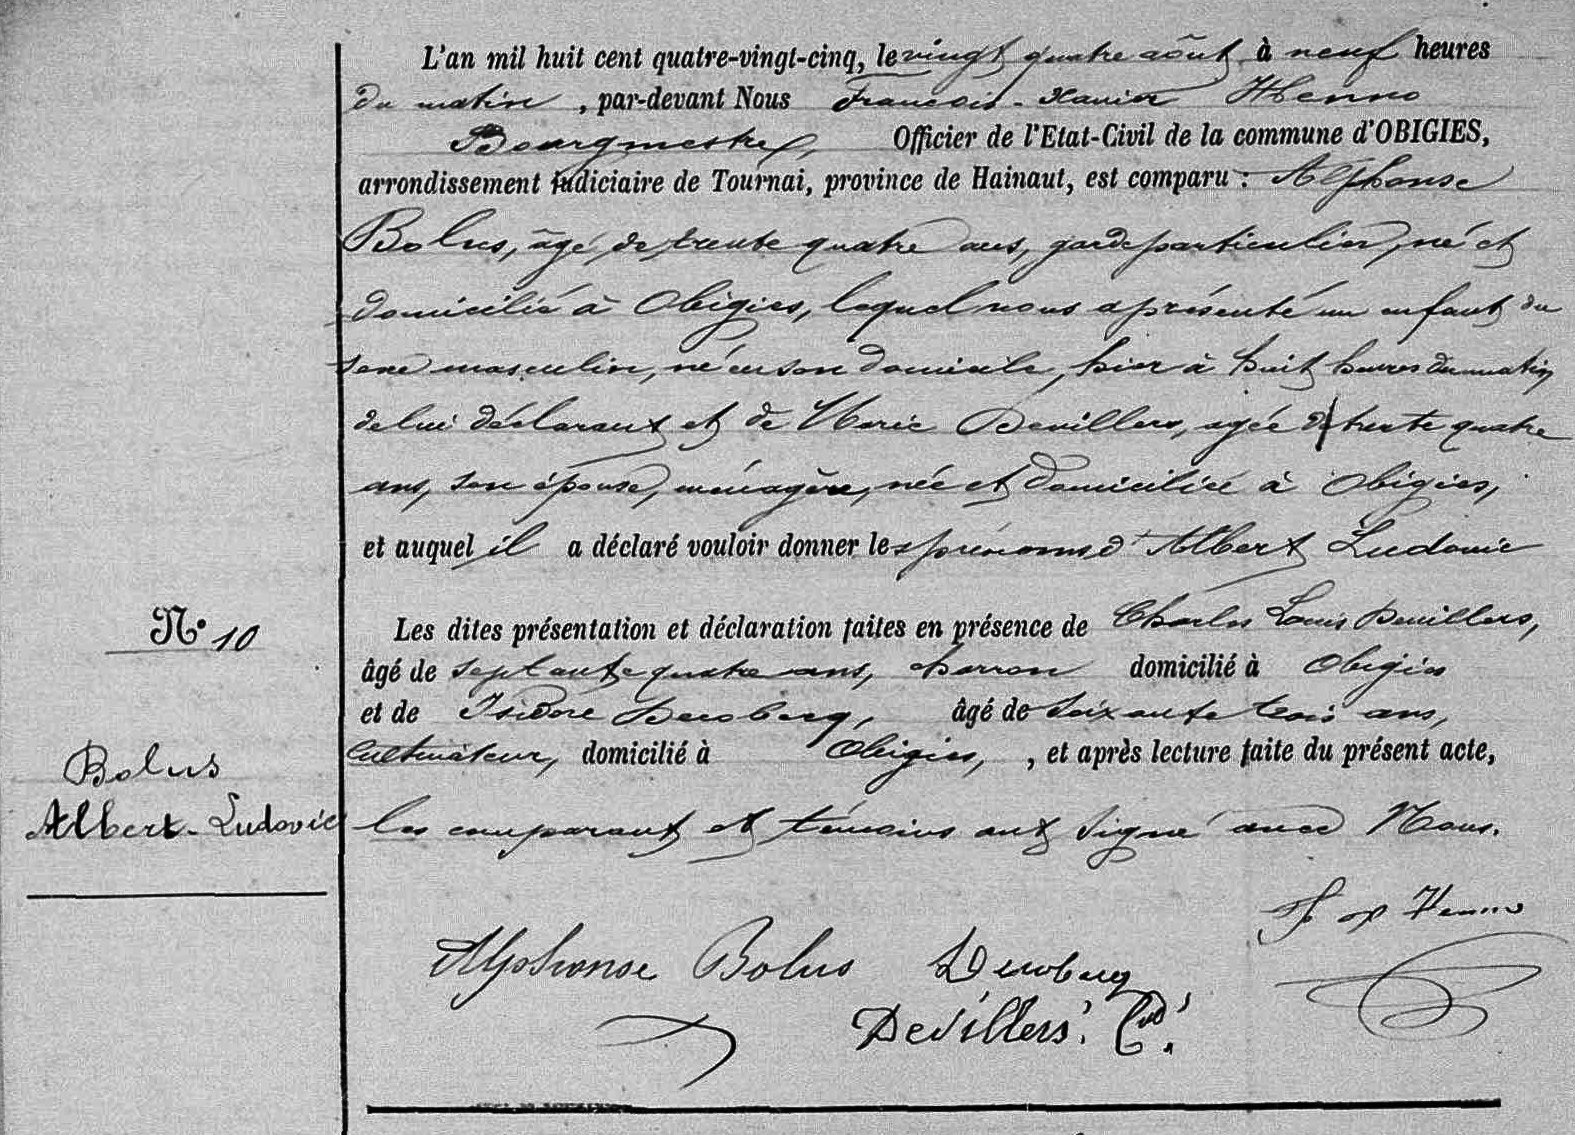 L'an mil huit cent quatre-vingt-cinq, le vingt quatre août à neuf heures
du matin, par-devant Nous François-Xavier Henno
Bourgmestre, Officier de l'Etat-Civil de la commune d'OBIGIES,
arrondissement judiciaire de Tournai, province de Hainaut, est comparu : Alphonse
Bolus, âgé de trente quatre ans, garde particulier, né et
domicilié à Obigies, lequel nous a présenté un enfant du
sexe masculin, né en son domicile, hier à huit heures du matin
de lui déclarant et de Marie Devillers, agée de trente quatre
ans, son épouse, ménagère, née et domiciliée à Obigies,
et auquel il a déclaré vouloir donner les prénoms d'Albert Ludovic
Les dites présentation et déclaration faites en présence de Charles Louis Devillers,
N° 10
âgé de septante quatre ans, domicilié à Obigies
et de Isidore âgé de soixante trois ans,
Cultivateur, domicilié à Obigies, , et après lecture faite du présent acte,
Bolus
Albert-Ludovic
les comparant et témoins ont signé avec Nous.
f x Henno
Alphonse Bolus
Devillers